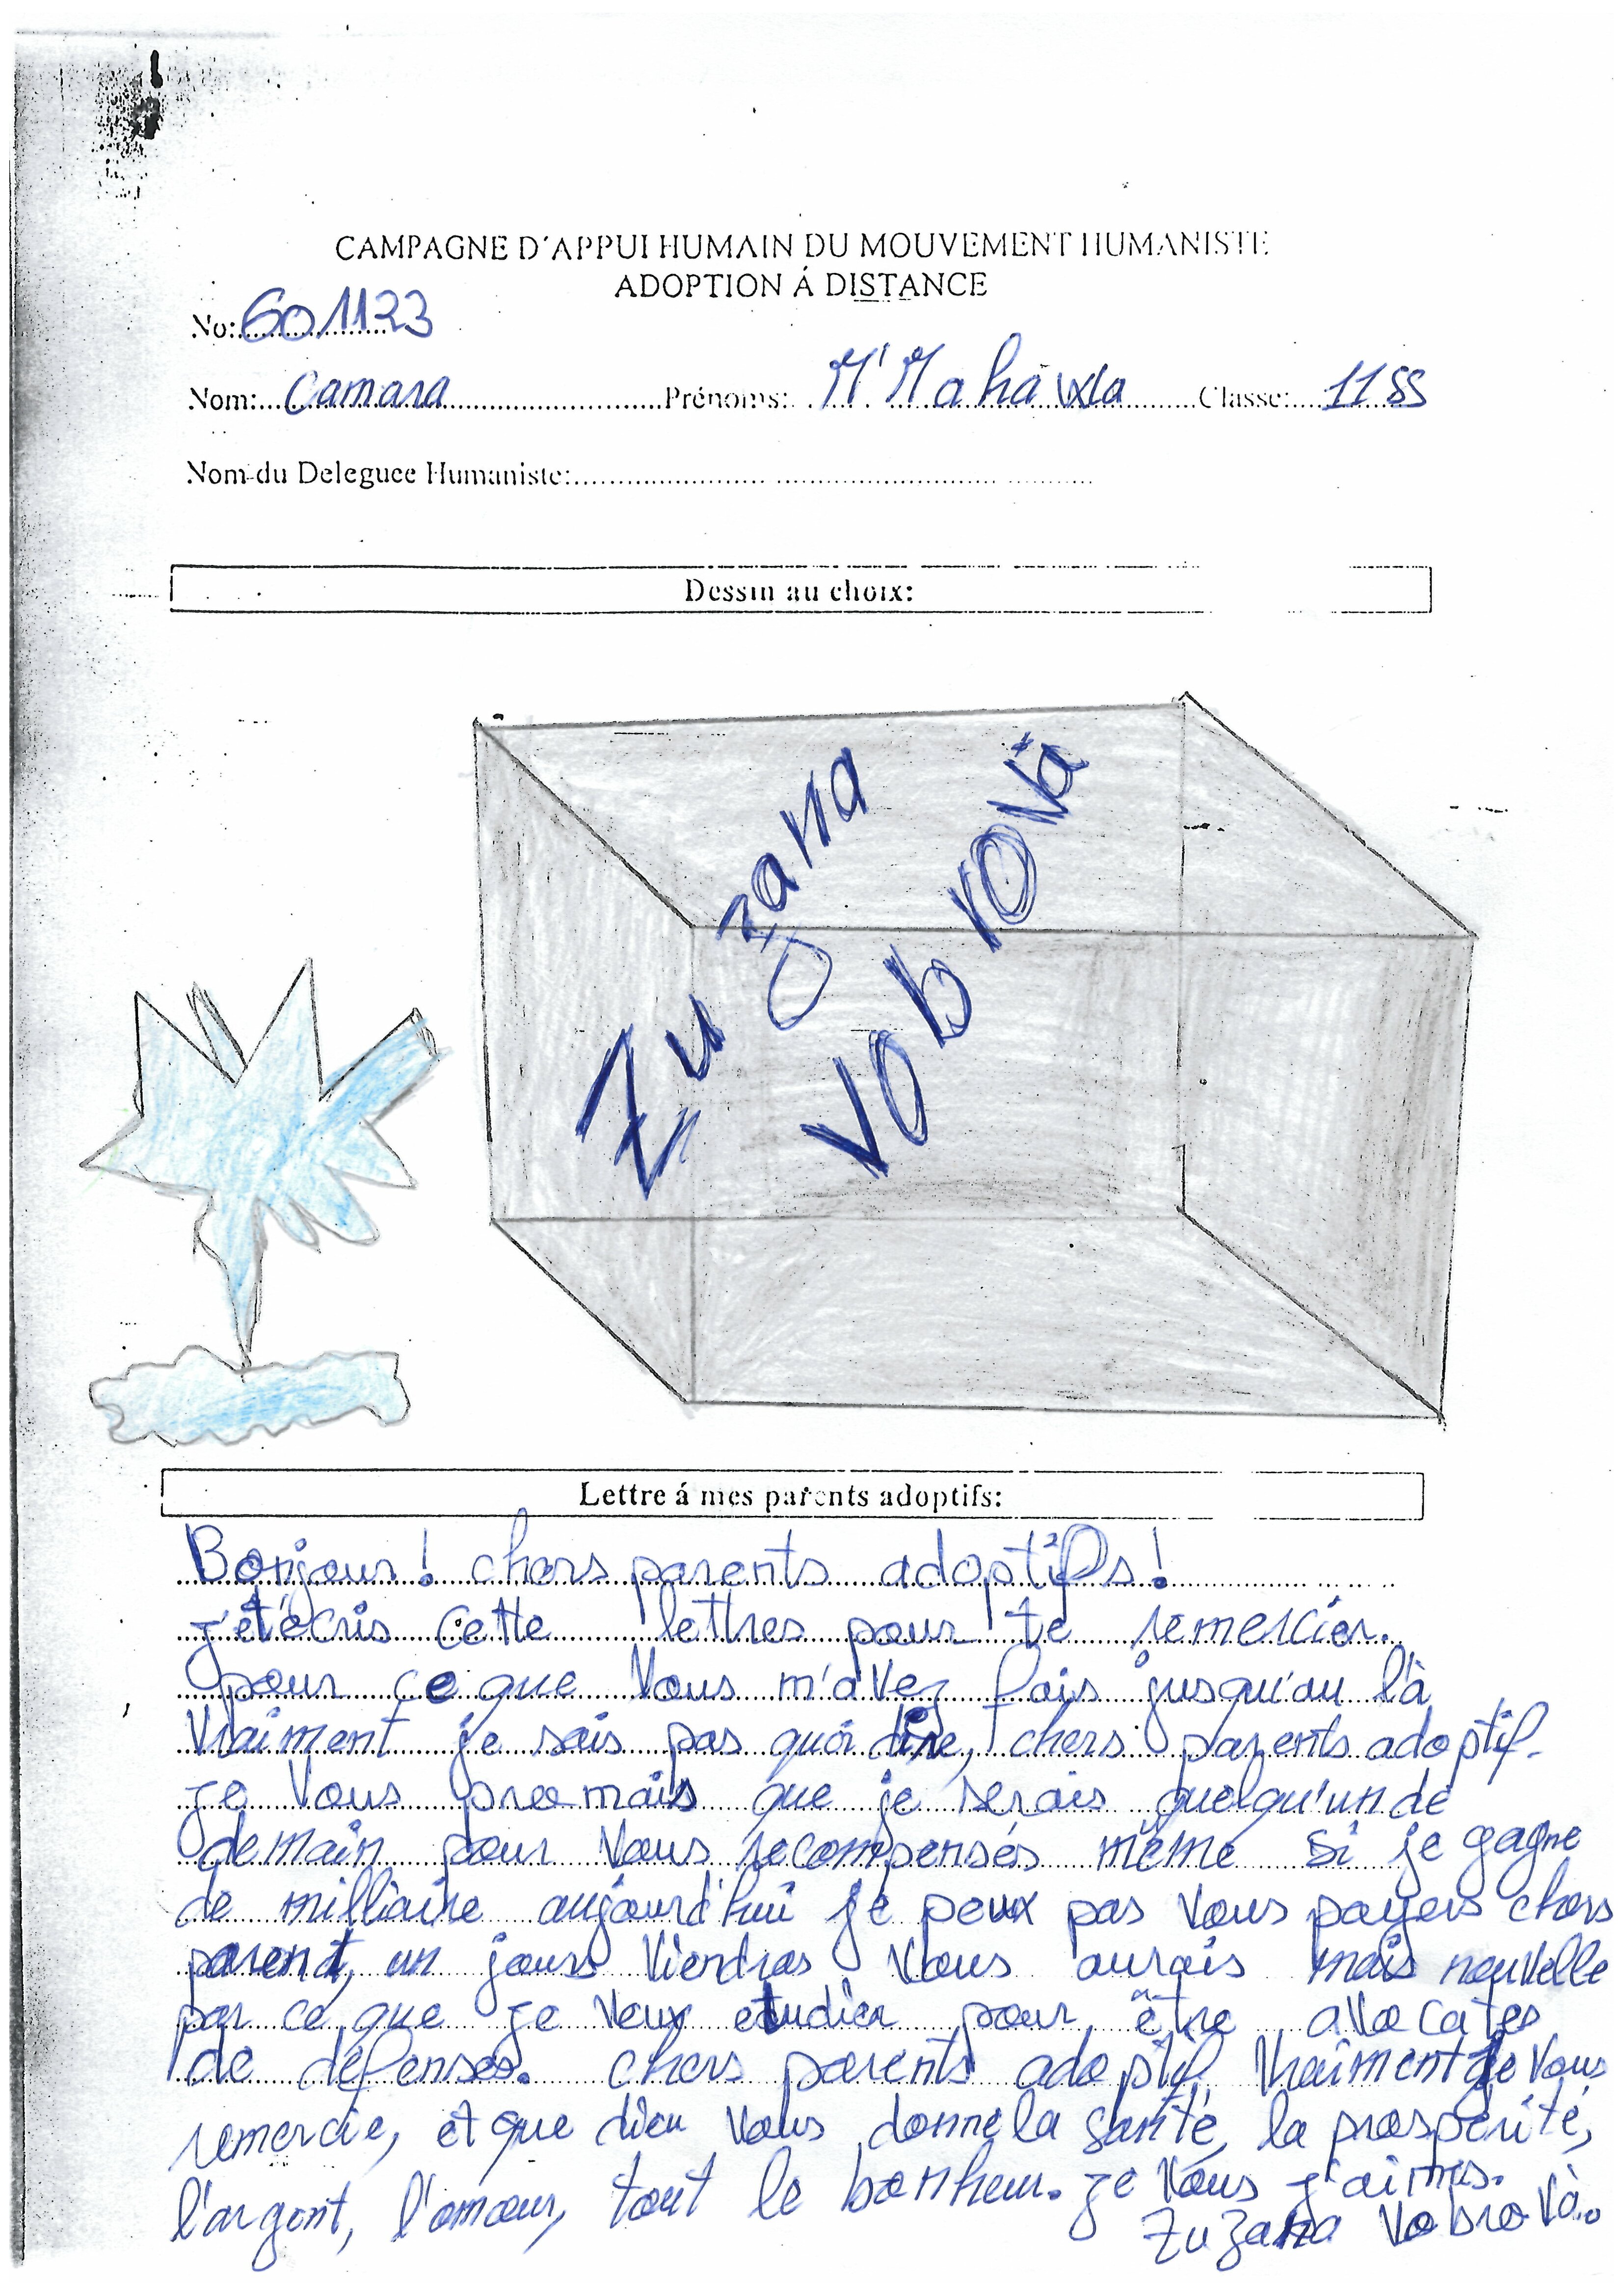 CAMPAGNE D'APPUI HUMAIN DU MOUVEMENT HUMANISTE
ADOPTION Á DISTANCE
No: 601123
Nom: Camara Prénoms: M'Mahawa Classe: 11 SS
Nom du Deleguee Humaniste:
Dessin au choix:
Zuzana
Vobrovà
Lettre á mes parents adoptifs:
Bonjour! chers parents adoptifs!
j'et'ecris cette lettres pour te remercier.
pour ce que Vous m'avez fais jusqu'au l'à
Vraiment je sais pas quoi dire, chers parents adoptif.
je Vous promais que je serais quelqu'un de
demain pour Vous recompensés même si je gagne
de milliaire aujourd'hui je peux pas Vous payers chers
parent, un jours Viendras Vous aurais mais nouvelle
par ce que je Veux etudier pour être avocates
de défenses. chers parents adoptif Vraiment je Vous
remercie, et que dieu Vous donne la santé, la prospérité,
l'argent, l'amour, tout le bonheur. je Vous j'aimes.
Zuzana Vobrovà..